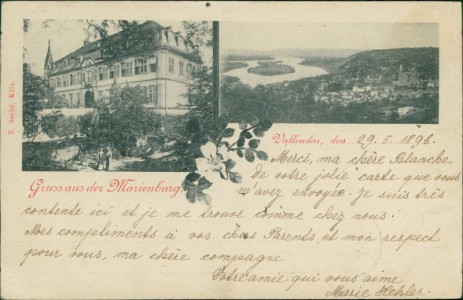 N. Sechel, Köln.
Gruss aus der Marienburg
Vallendar, den 29.5.1898.
Merci, ma chère Blanche
de votre jolie carte que vous
m'avez envoyée. Je suis très
contente ici et je me trouve comme chez nous.
Mes compliments à vos chers Parents, et mon respect
pour vous, ma chère compagne
Votre amie qui vous aime
Marie